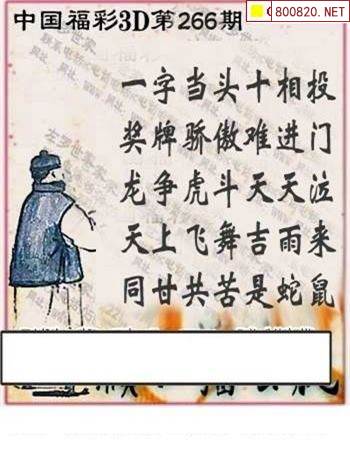 中国福彩3D第266期
800820.NET
一字当头十相投
奖牌骄傲难进门
龙争虎斗天天泣
天上飞舞吉雨来
同甘共苦是蛇鼠